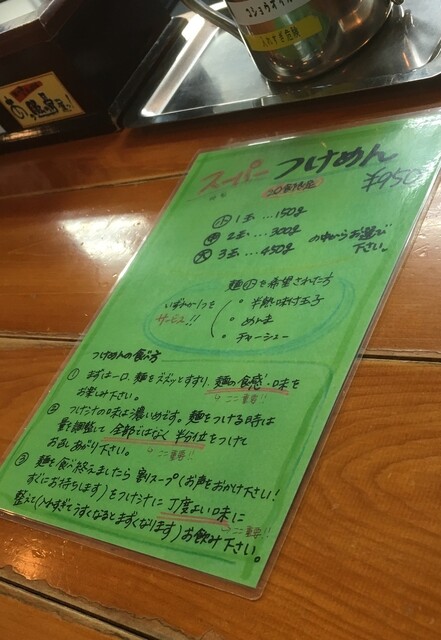 コショウオイル
入れすぎ危険
スーパーつけめん
20食限定
¥950
小 1玉…150g
中 2玉…300g
大 3玉…450g
の中からお選び
下さい。
麺小を希望された方
いずれか1つを
サービス!!
・半熟味付玉子
・めんま
・チャーシュー
つけめんの食べ方
① まずは一口、麺をズズッとすすり、麺の食感・味を
お楽しみ下さい。
ここ重要!!
② つけ汁の味は濃いめです。麺をつける時は
量を調整して全部ではなく半分位をつけて
お召しあがり下さい。
ここ重要!!
③ 麺を食べ終えましたら割りスープ(お声をおかけ下さい!
すぐにお持ちします)をつけ汁に丁度よい味に
ここ重要!!
整えて(入れすぎてうすくなるとまずくなります)お飲み下さい。